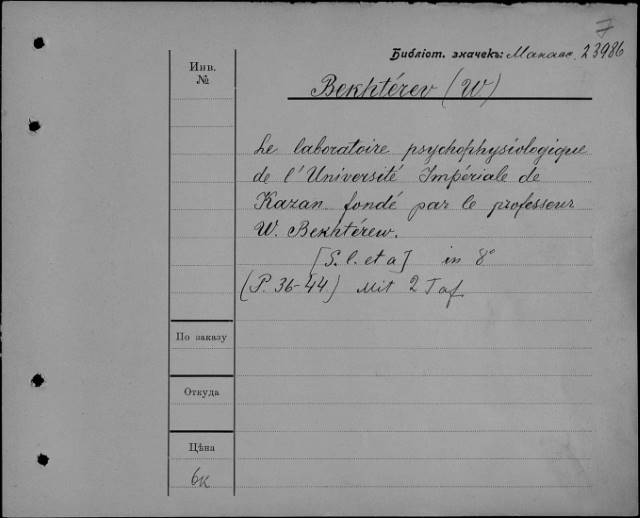 7
Библіот. значекъ: 23986
Инв.
№
Bekhtérev (W)
Le laboratoire psychophysiologique
de l'Université Impériale de
Kazan fondé par le professeur
W. Bekhtérew.
[S. l. et a] in 8°
(P. 36-44) Mit 2 Taf
По заказу
Откуда
Цѣна
6к